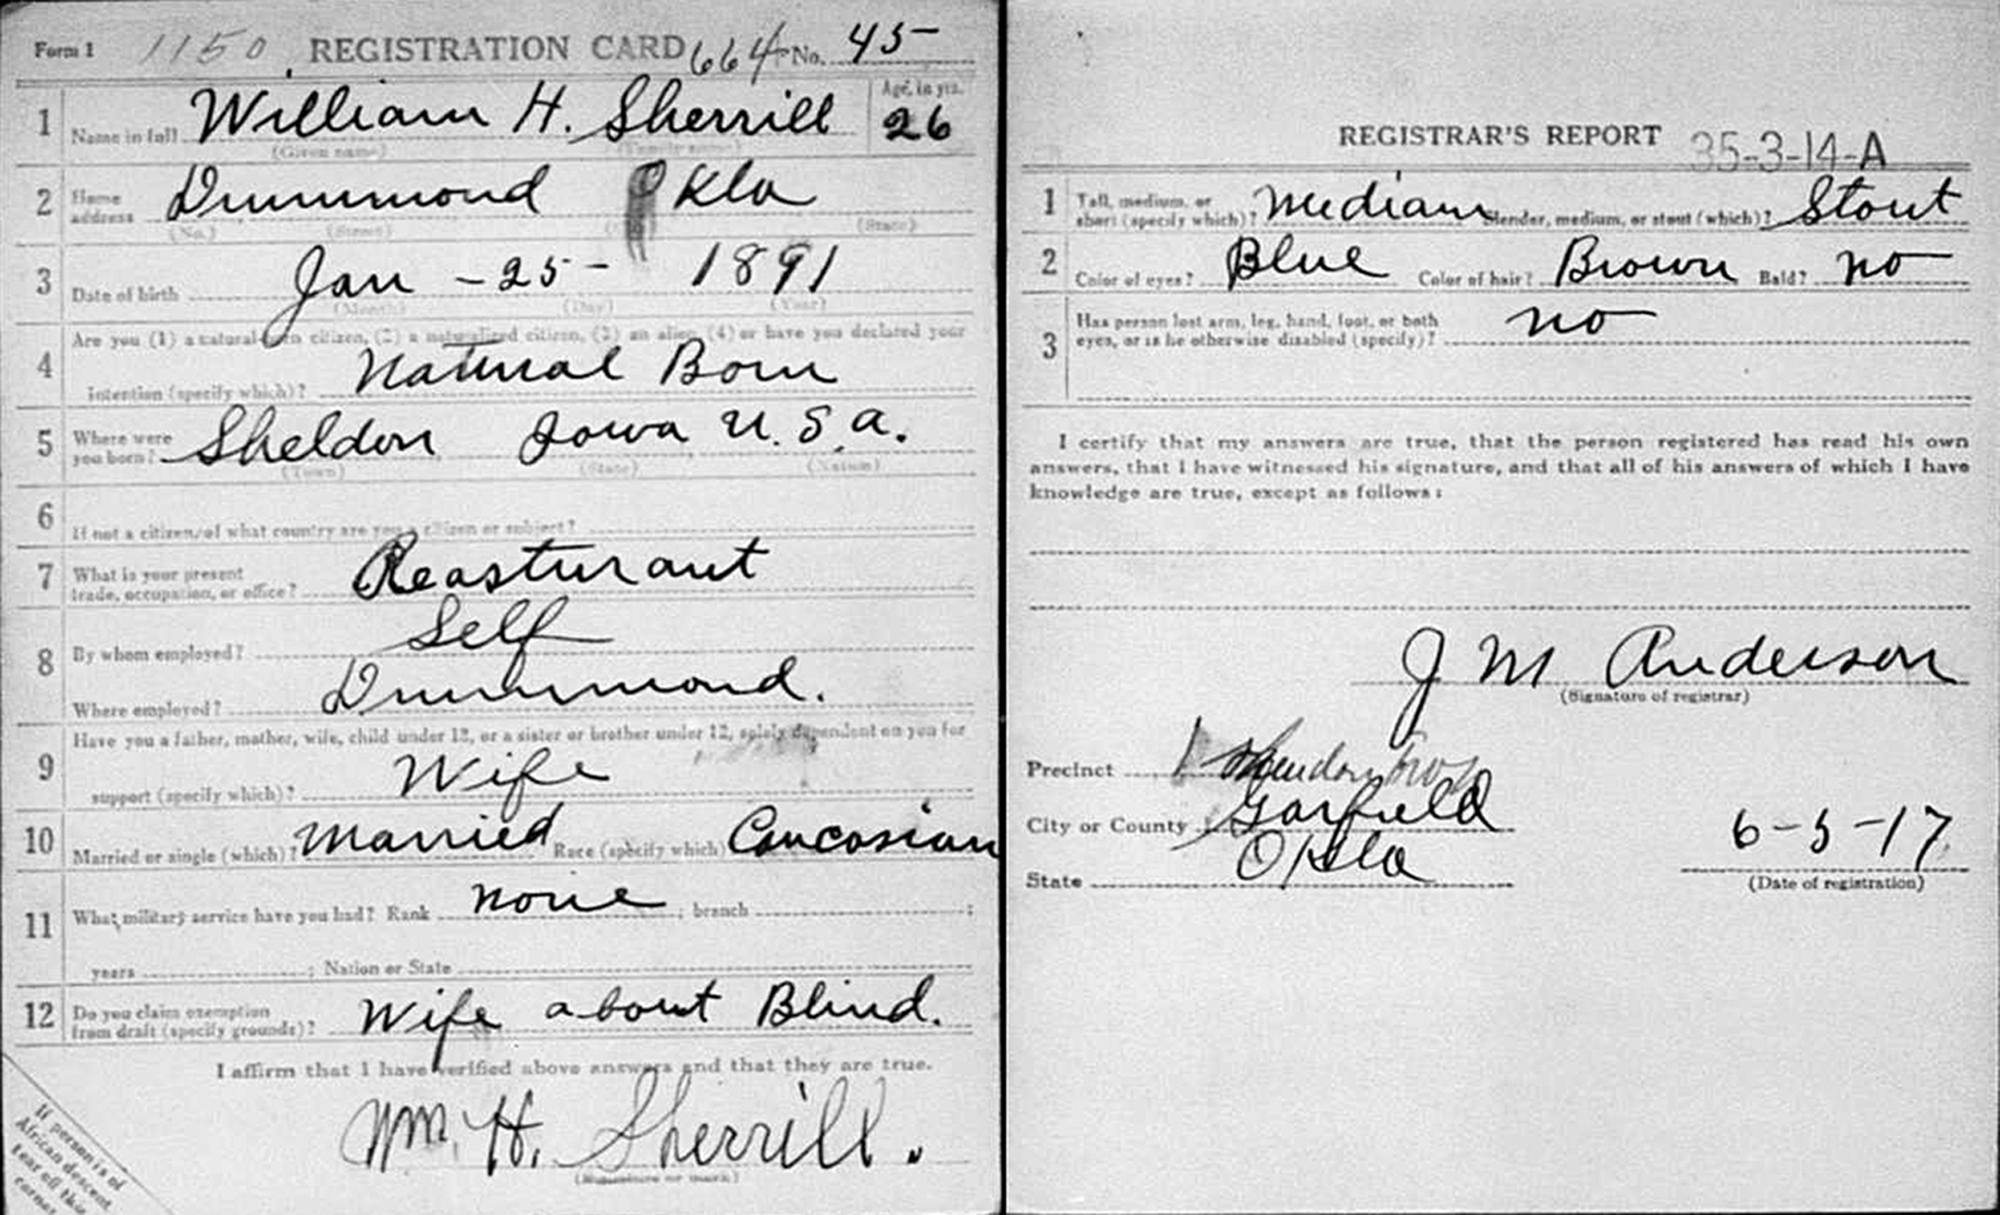 Form 1 1150 REGISTRATION CARD 664 No. 45
1 Name in full William H. Sherrill Age, in yrs. 26
(Given name) (Family name)
2 Home address Drummond Okla
(No.) (Street) (State)
3 Date of birth Jan - 25 - 1891
(Month) (Day) (Year)
4 Are you (1) a natural-born citizen, (2) a naturalized citizen, (3) an alien, (4) or have you declared your
intention (specify which)? Natural Born
5 Where were you born? Sheldon Iowa U.S.A.
(Town) (State) (Nation)
6 If not a citizen, of what country are you a citizen or subject?
7 What is your present trade, occupation, or office? Reasturant
8 By whom employed? Self
Where employed? Drummond.
9 Have you a father, mother, wife, child under 12, or a sister or brother under 12, solely dependent on you for
support (specify which)? Wife
10 Married or single (which)? Married Race (specify which) Caucasian
11 What military service have you had? Rank none ; branch ;
years ; Nation or State
12 Do you claim exemption from draft (specify grounds)? Wife about Blind.
I affirm that I have verified above answers and that they are true.
Wm. H. Sherrill.
(Signature or mark)
If person is of
African descent
tear off this
corner
REGISTRAR'S REPORT 35-3-14-A
1 Tall, medium, or short (specify which)? Mediam Slender, medium, or stout (which)? Stout
2 Color of eyes? Blue Color of hair? Brown Bald? no
3 Has person lost arm, leg, hand, foot, or both eyes, or is he otherwise disabled (specify)? no
I certify that my answers are true, that the person registered has read his own
answers, that I have witnessed his signature, and that all of his answers of which I have
knowledge are true, except as follows:
J M Anderson
(Signature of registrar)
Precinct
City or County Garfield
State Okla
6-5-17
(Date of registration)